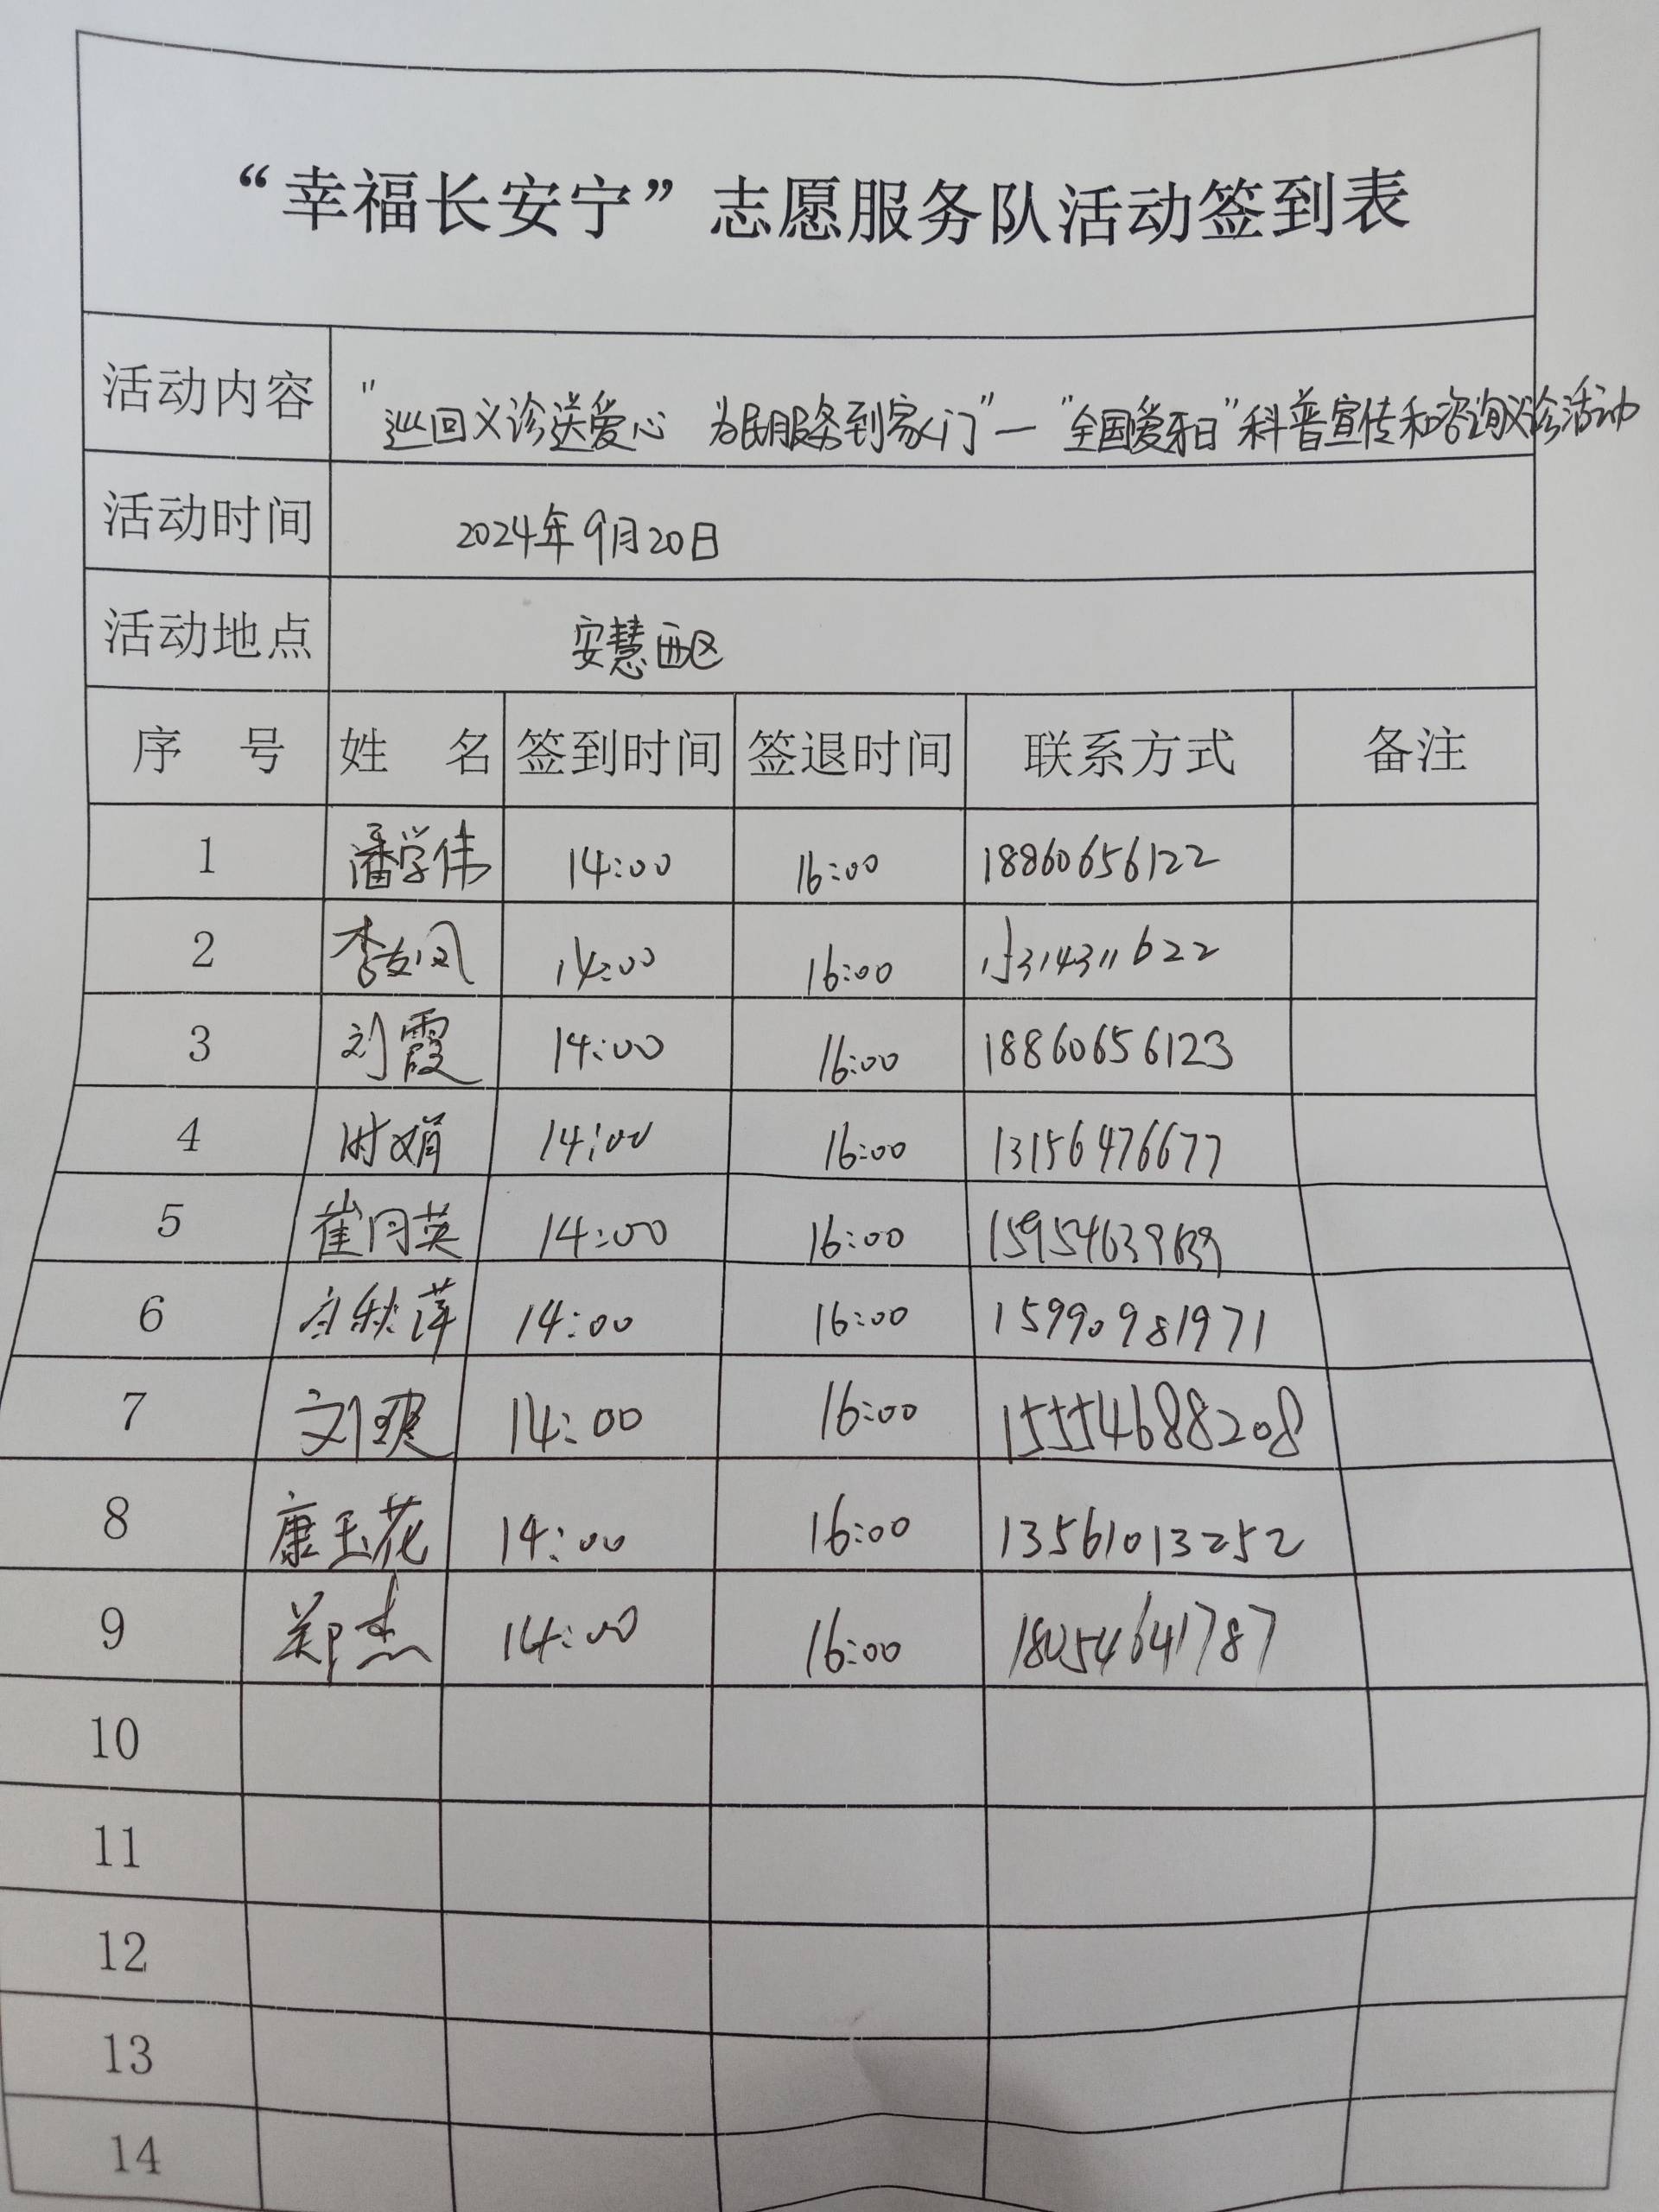 “幸福长安宁”志愿服务队活动签到表
活动内容 "巡回义诊送爱心 为民服务到家门"—"全国爱牙日"科普宣传和咨询义诊活动
活动时间 2024年9月20日
活动地点 安慧西区
序 号 姓 名 签到时间 签退时间 联系方式 备注
1 潘学伟 14:00 16:00 18860656122
2 14:00 16:00
3 刘霞 14:00 16:00 18860656123
4 时娟 14:00 16:00 13156476677
5 崔月英 14:00 16:00
6 14:00 16:00 15990981971
7 刘爽 14:00 16:00 15554688208
8 康玉花 14:00 16:00 13561013252
9 郑杰 14:00 16:00 18054641787
10
11
12
13
14